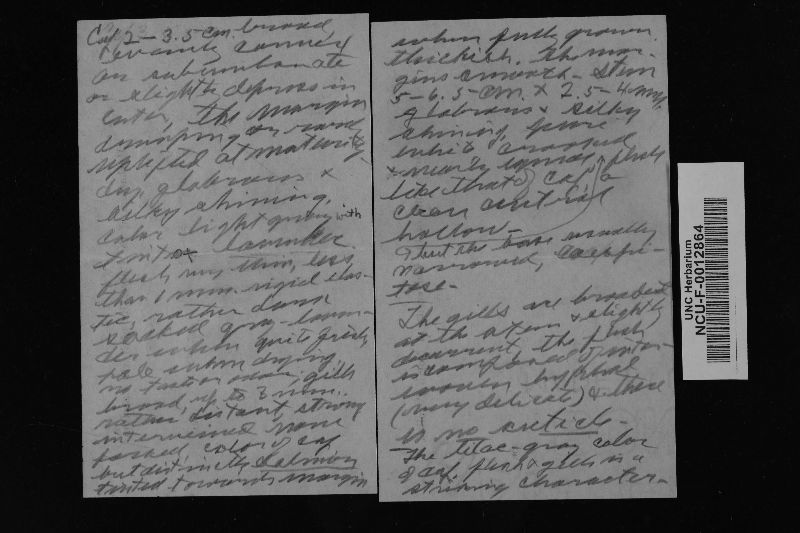 Cap 2-3.5 cm. broad,
convex
or subumbonate
or slightly depress in
center, the margin
drooping or
uplifted at maturity,
dry, glabrous &
silky shining,
color light gray with
tint of lavender.
flesh very thin, less
than 1 mm. rigid elas-
tic, rather dark
soaked gray-laven-
der when quite fresh
pale when drying,
no taste or odor, gills
broad, up to 3 mm.
rather distant, strongly
intervened
forked, color of cap
but distinctly salmon
tinted towards margin
when fully grown.
thickish. The mar-
gins smooth - Stem
5-6.5 cm. x 2.5-4 mm.
glabrous & silky
shining, pure
white
& nearly equal, flesh
like that of cap &
clear central
hollow-
but the base usually
narrowed, caespi-
tose-
The gills are broadest
at the stem & slightly
decurrent, the flesh
is composed of inter-
woven hyphae
(very delicate) & there
is no cuticle-
The lilac-gray color
of cap, flesh & gills is a
striking character-
UNC Herbarium
NCU-F-0012864